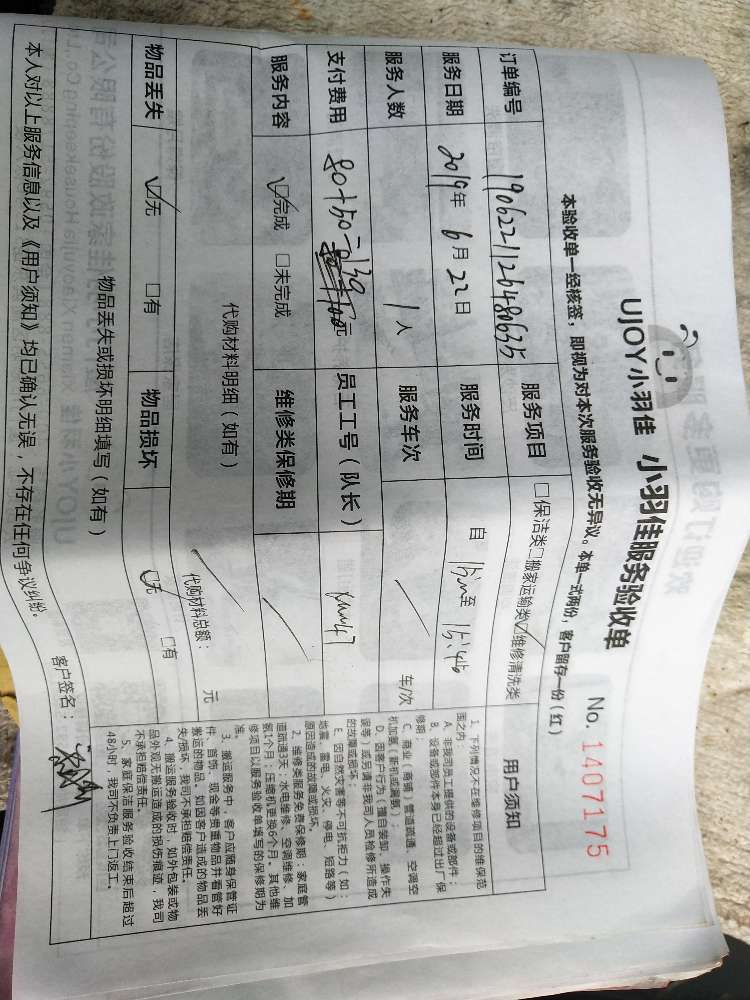 UJOY小羽佳 小羽佳服务验收单
No. 1407175
本验收单一经核签，即视为对本次服务验收无异议。本单一式两份，客户留存一份(红)
订单编号 1906221126480635 服务项目 □保洁类□搬家运输类☑维修清洗类
服务日期 2019年 6月 22日 服务时间 自 至 15:46
服务人数 1 人 服务车次 / 车/次
支付费用 80+50=130 元 员工工号(队长)
服务内容 ☑完成 □未完成 维修类保修期 /
代购材料明细(如有)
/ 代购材料总额： 元
物品丢失 ☑无 □有 物品损坏 ☑无 □有
物品丢失或损坏明细填写(如有)
本人对以上服务信息以及《用户须知》均已确认无误，不存在任何争议纠纷。
客户签名：
用户须知
1、下列情况不在维修项目的维保范
围之内：
A、非我司员工提供的设备或部件；
B、设备或部件本身已经超过出厂保
修期；
C、商业(商铺)管道疏通、空调空
机加氟(新机或漏氟)；
D、因客户行为(擅自装卸、操作失
误等)或另请非我司人员检修所造成
的故障或损坏；
E、因自然灾害等不可抗拒力(如：
地震、雷电、火灾、停电、短路等)
原因造成的故障或损坏。
2、维修类服务免费保修期：家庭管
道疏通3天；水电维修、空调维修、加
氨1个月；压缩机更换6个月。其他维
修项目以服务验收单填写的保修期为
准。
3、搬运服务中，客户应随身保管证
件、首饰、现金等贵重物品并看管好
搬运的物品。如因客户造成的物品丢
失/损坏，我司不承担赔偿责任。
4、搬运服务验收时，如外包装或物
品外观无搬运造成的损伤痕迹，我司
不承担赔偿责任。
5、家庭保洁服务验收结束后超过
48小时，我司不负责上门返工。